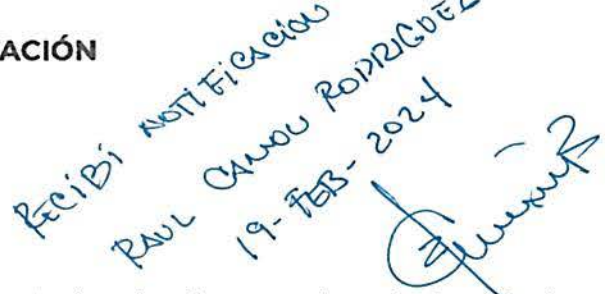 ACIÓN
RECIBÍ NOTIFICACIÓN
RAUL CANOU RODRIGUEZ
19-FEB-2024